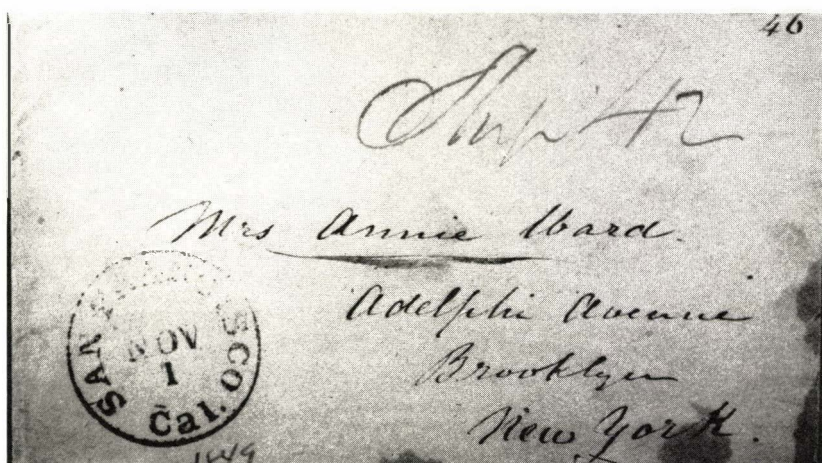 46
Ship 42
Mrs Annie Ward.
Adelphi Avenue
Brooklyn
New York.
SAN FRANCISCO
NOV
1
Cal.
1849